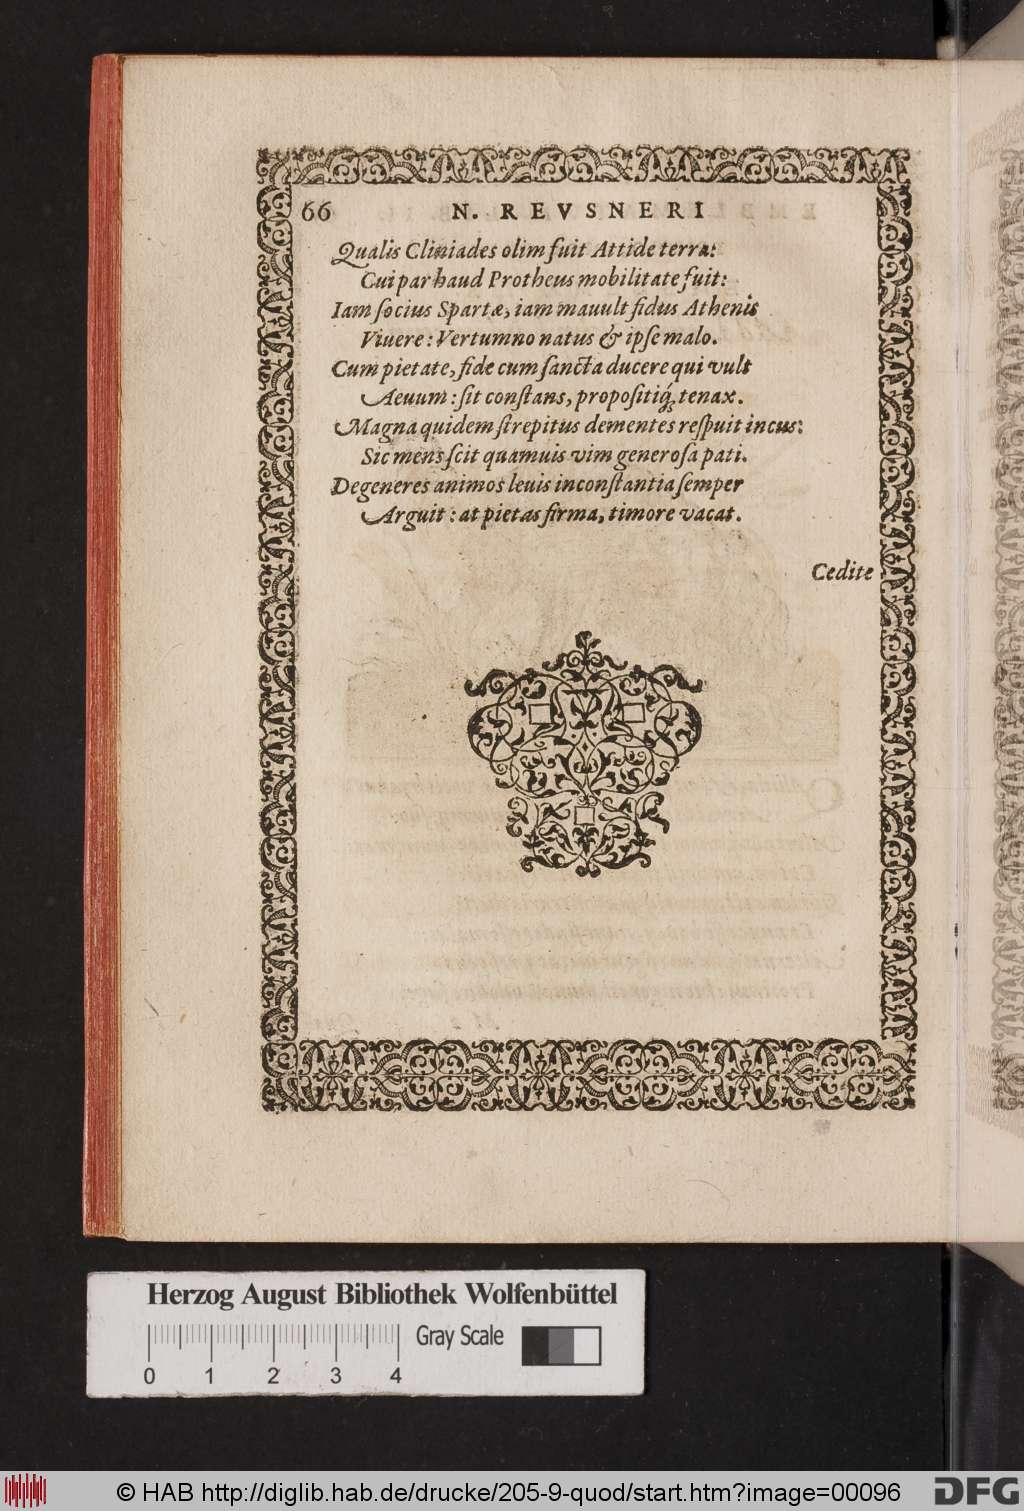 66 N. REVSNERI
Qualis Cliniades olim fuit Attide terra:
Cui par haud Protheus mobilitate fuit:
Iam socius Spartæ, iam mauult fidus Athenis
Viuere: Vertumno natus & ipse malo.
Cum pietate, fide cum sancta ducere qui vult
Aeuum: sit constans, propositiq́; tenax.
Magna quidem strepitus dementes respuit incus:
Sic mens scit quamuis vim generosa pati.
Degeneres animos leuis inconstantia semper
Arguit: at pietas firma, timore vacat.
Cedite
Herzog August Bibliothek Wolfenbüttel
Gray Scale
0 1 2 3 4
© HAB http://diglib.hab.de/drucke/205-9-quod/start.htm?image=00096
DFG